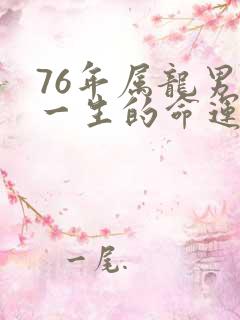 76年属龍男
一生的命運
一尾.